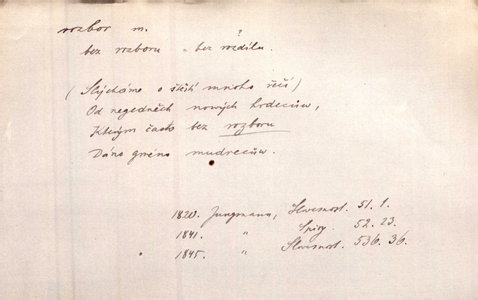 rozbor m.
?
bez rozboru = bez rozdílu.
(Slýcháme o štěstí mnoho řečí)
Od negedněch nowých hrdecůw,
Kterým často bez rozboru
Dáno gméno mudrcůw.
1820. Jungmann, Slovesnost. 51. 1.
1841. " Spisy. 52. 23.
1845. " Slovesnost. 536. 36.